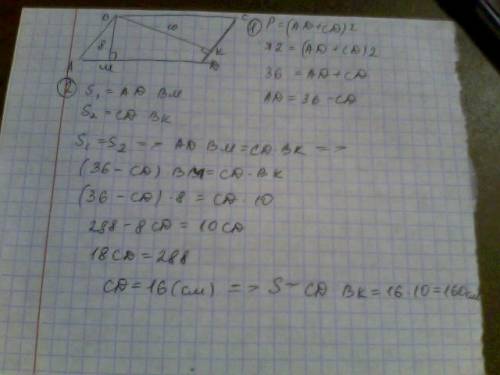 B
C
10
8
K
A
M
D
① P = (AD + CD) 2
72 = (AD + CD) 2
36 = AD + CD
AD = 36 - CD
② S₁ = AD BM
S₂ = CD BK
S₁ = S₂ => AD BM = CD · BK =>
(36 - CD) BM = CD · BK
(36 - CD) · 8 = CD · 10
288 - 8CD = 10CD
18CD = 288
CD = 16 (см) => S = CD BK = 16 · 10 = 160см